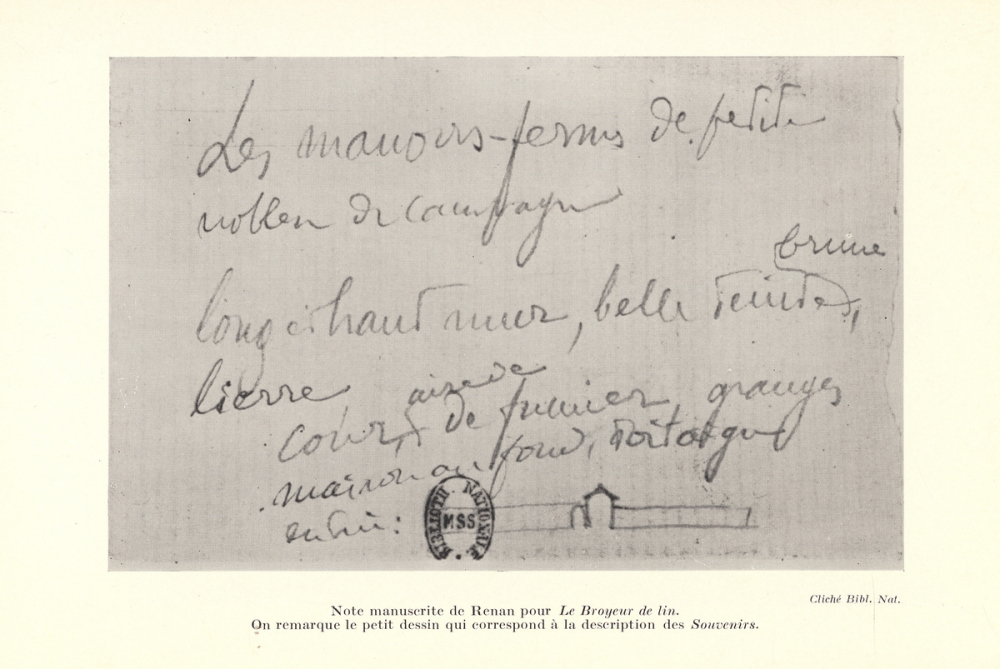 Les manoirs-fermes de petite
noblesse de campagne
brune
long et haut mur, belle teinte,
lierre
aire de
cour, de fumier, granges
maison au fond, toit aigu
entrée :
BIBLIOTH. NATIONALE
MSS
Cliché Bibl. Nat.
Note manuscrite de Renan pour Le Broyeur de lin.
On remarque le petit dessin qui correspond à la description des Souvenirs.